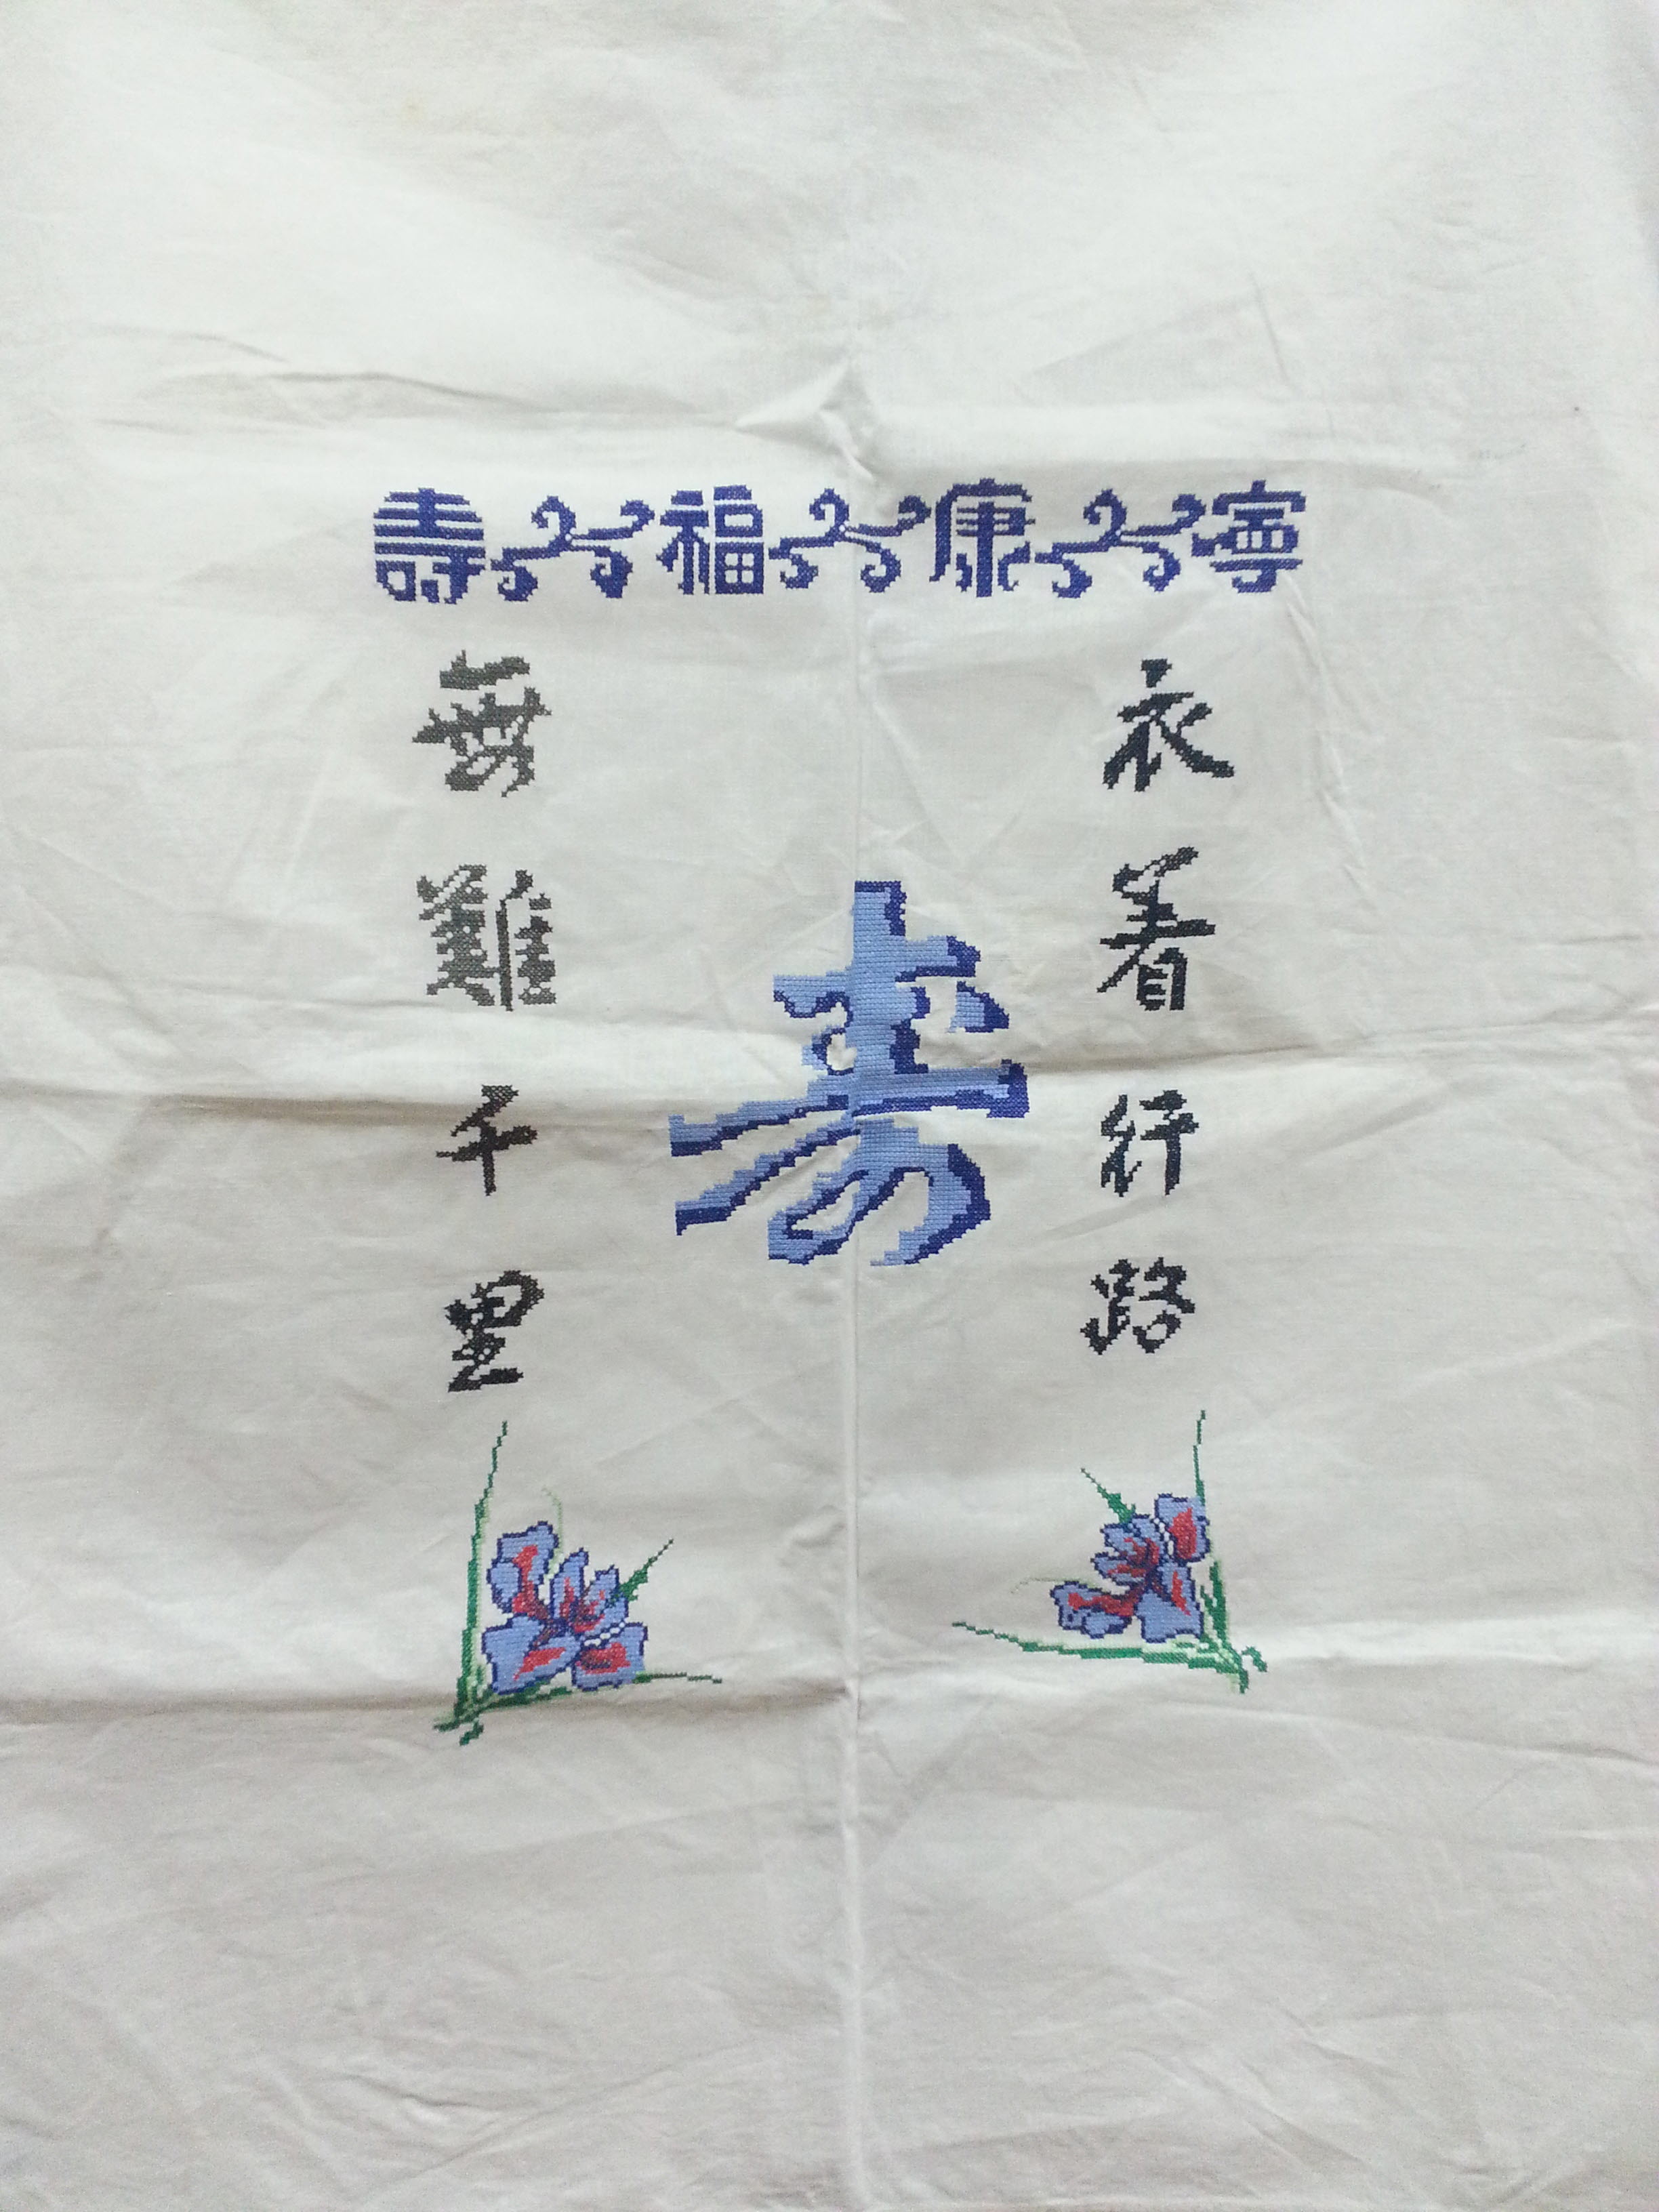 壽福康寧
衣着行路
寿
無難千里